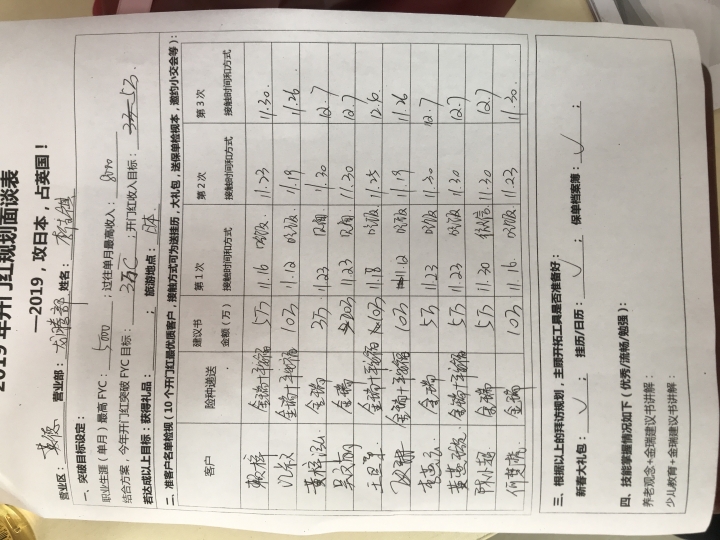 2019年开门红规划面谈表
—2019，攻日本，占英国！
营业区： 英德 营业部： 龙腾部 姓名：
一、突破目标设定：
职业生涯（单月）最高 FYC： 5000 ；过往单月最高收入： 8000
结合方案，今年开门红突破 FYC 目标： 3万C ；开门红收入目标： 5万
若达成以上目标：获得礼品： ；旅游地点： 日本
二、准客户名单检视（10 个开门红最优质客户，接触方式可为送挂历，大礼包，送保单检视本，邀约小交会等）：
客户 险种递送 建议书金额（万） 第 1 次接触时间和方式 第 2 次接触时间和方式 第 3 次接触时间和方式
金瑞+平安福 5万 11.16 吃饭 11.23 11.30
沉款 金瑞+平安福 10万 11.12 吃饭 11.19 11.26
金瑞 3万 11.23 11.30 12.7
金瑞 10万 11.23 11.30 12.7
金瑞+平安福 10万 11.18 吃饭 11.25 12.6
金瑞+平安福 10万 11.12 吃饭 11.19 11.26
金瑞 5万 11.23 吃饭 11.30 12.7
金瑞+平安福 5万 11.23 吃饭 11.30 12.7
金瑞 5万 11.30 微信 11.30 12.7
何楚 金瑞 10万 11.16 吃饭 11.23 11.30
三、根据以上的拜访规划，主顾开拓工具是否准备好：
新春大礼包： √ ； 挂历/日历： √ ； 保单档案簿： √ ；
四、技能掌握情况如下（优秀/流畅/勉强）：
养老观念+金瑞建议书讲解：
少儿教育+金瑞建议书讲解：